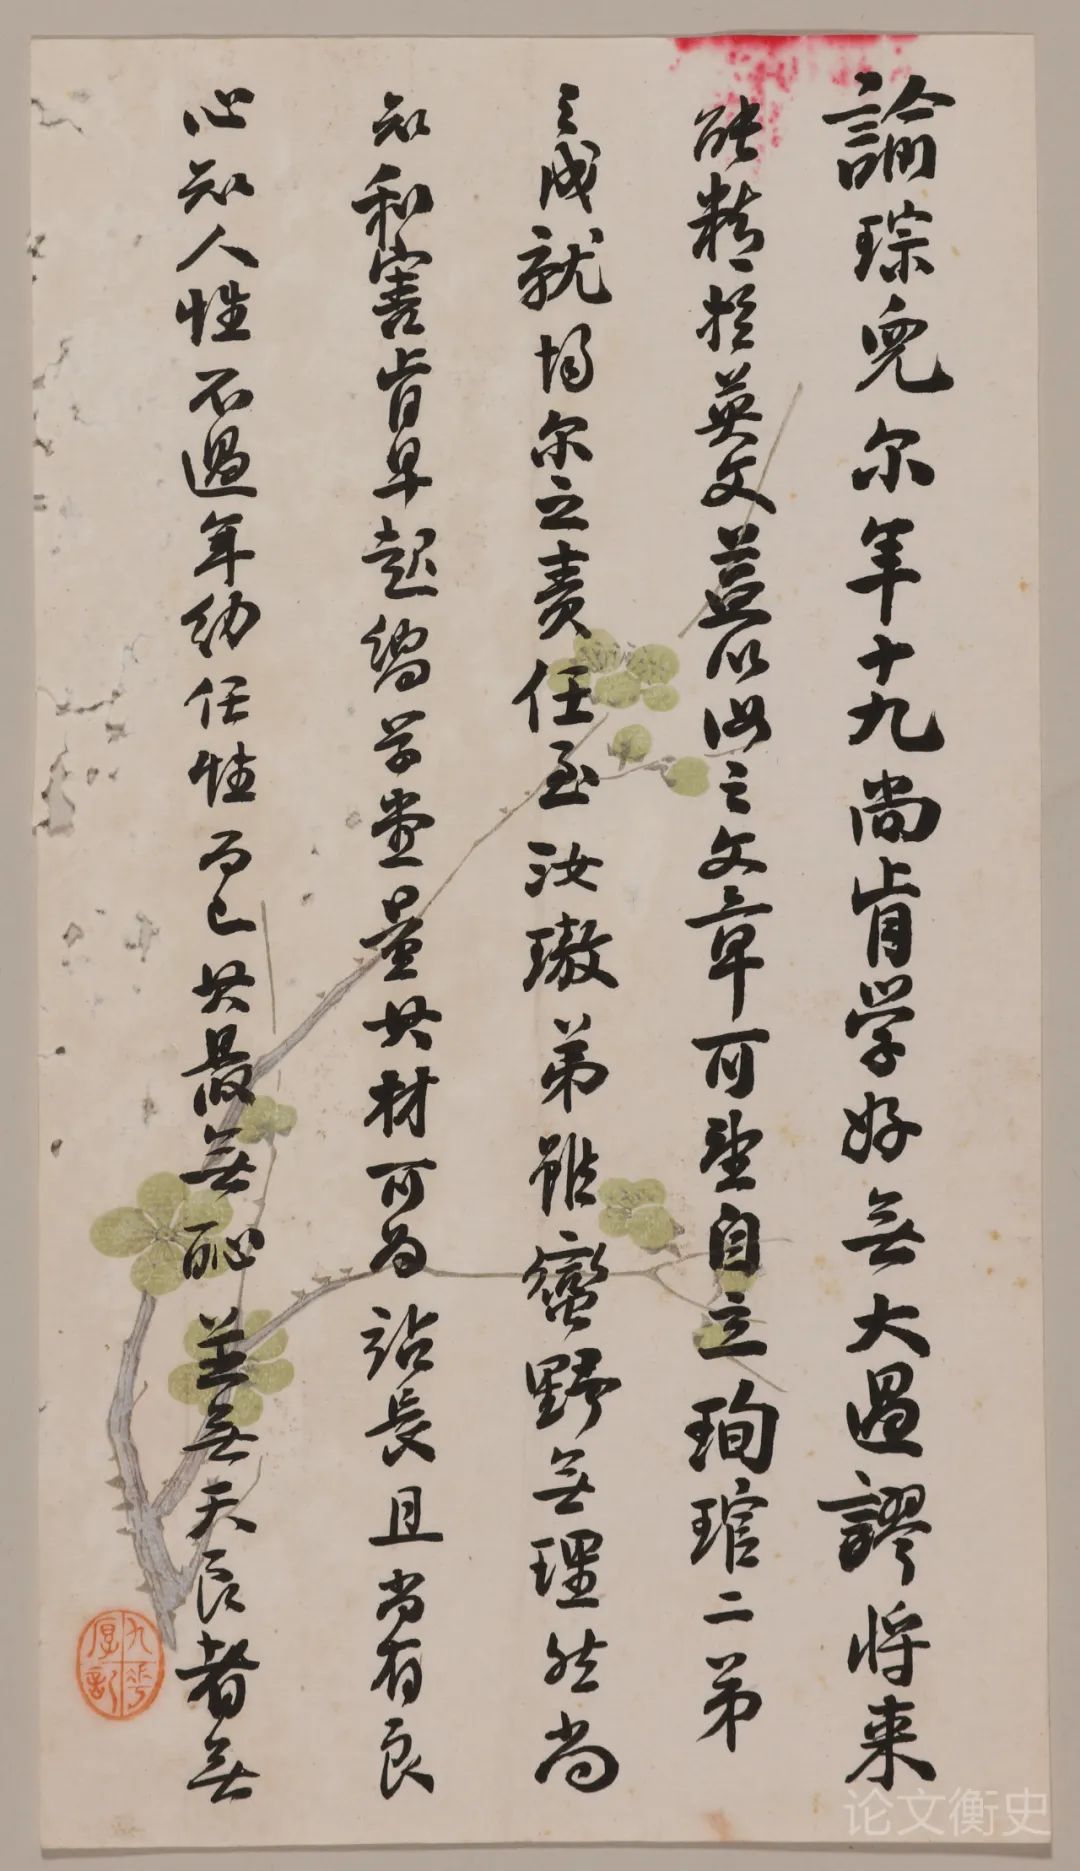 諭琮兒尔年十九尚肯学好無大過謬将来
能精於英文益以汝之文章可望自立珣琯二弟
之成就均尔之責任至汝璈弟雖蠻野無理然尚
知利害肯早起給学堂量其材可为站長且尚有良
心知人性不過年幼任性而已其最無恥並無天良者無
九華厚記
论文衡史